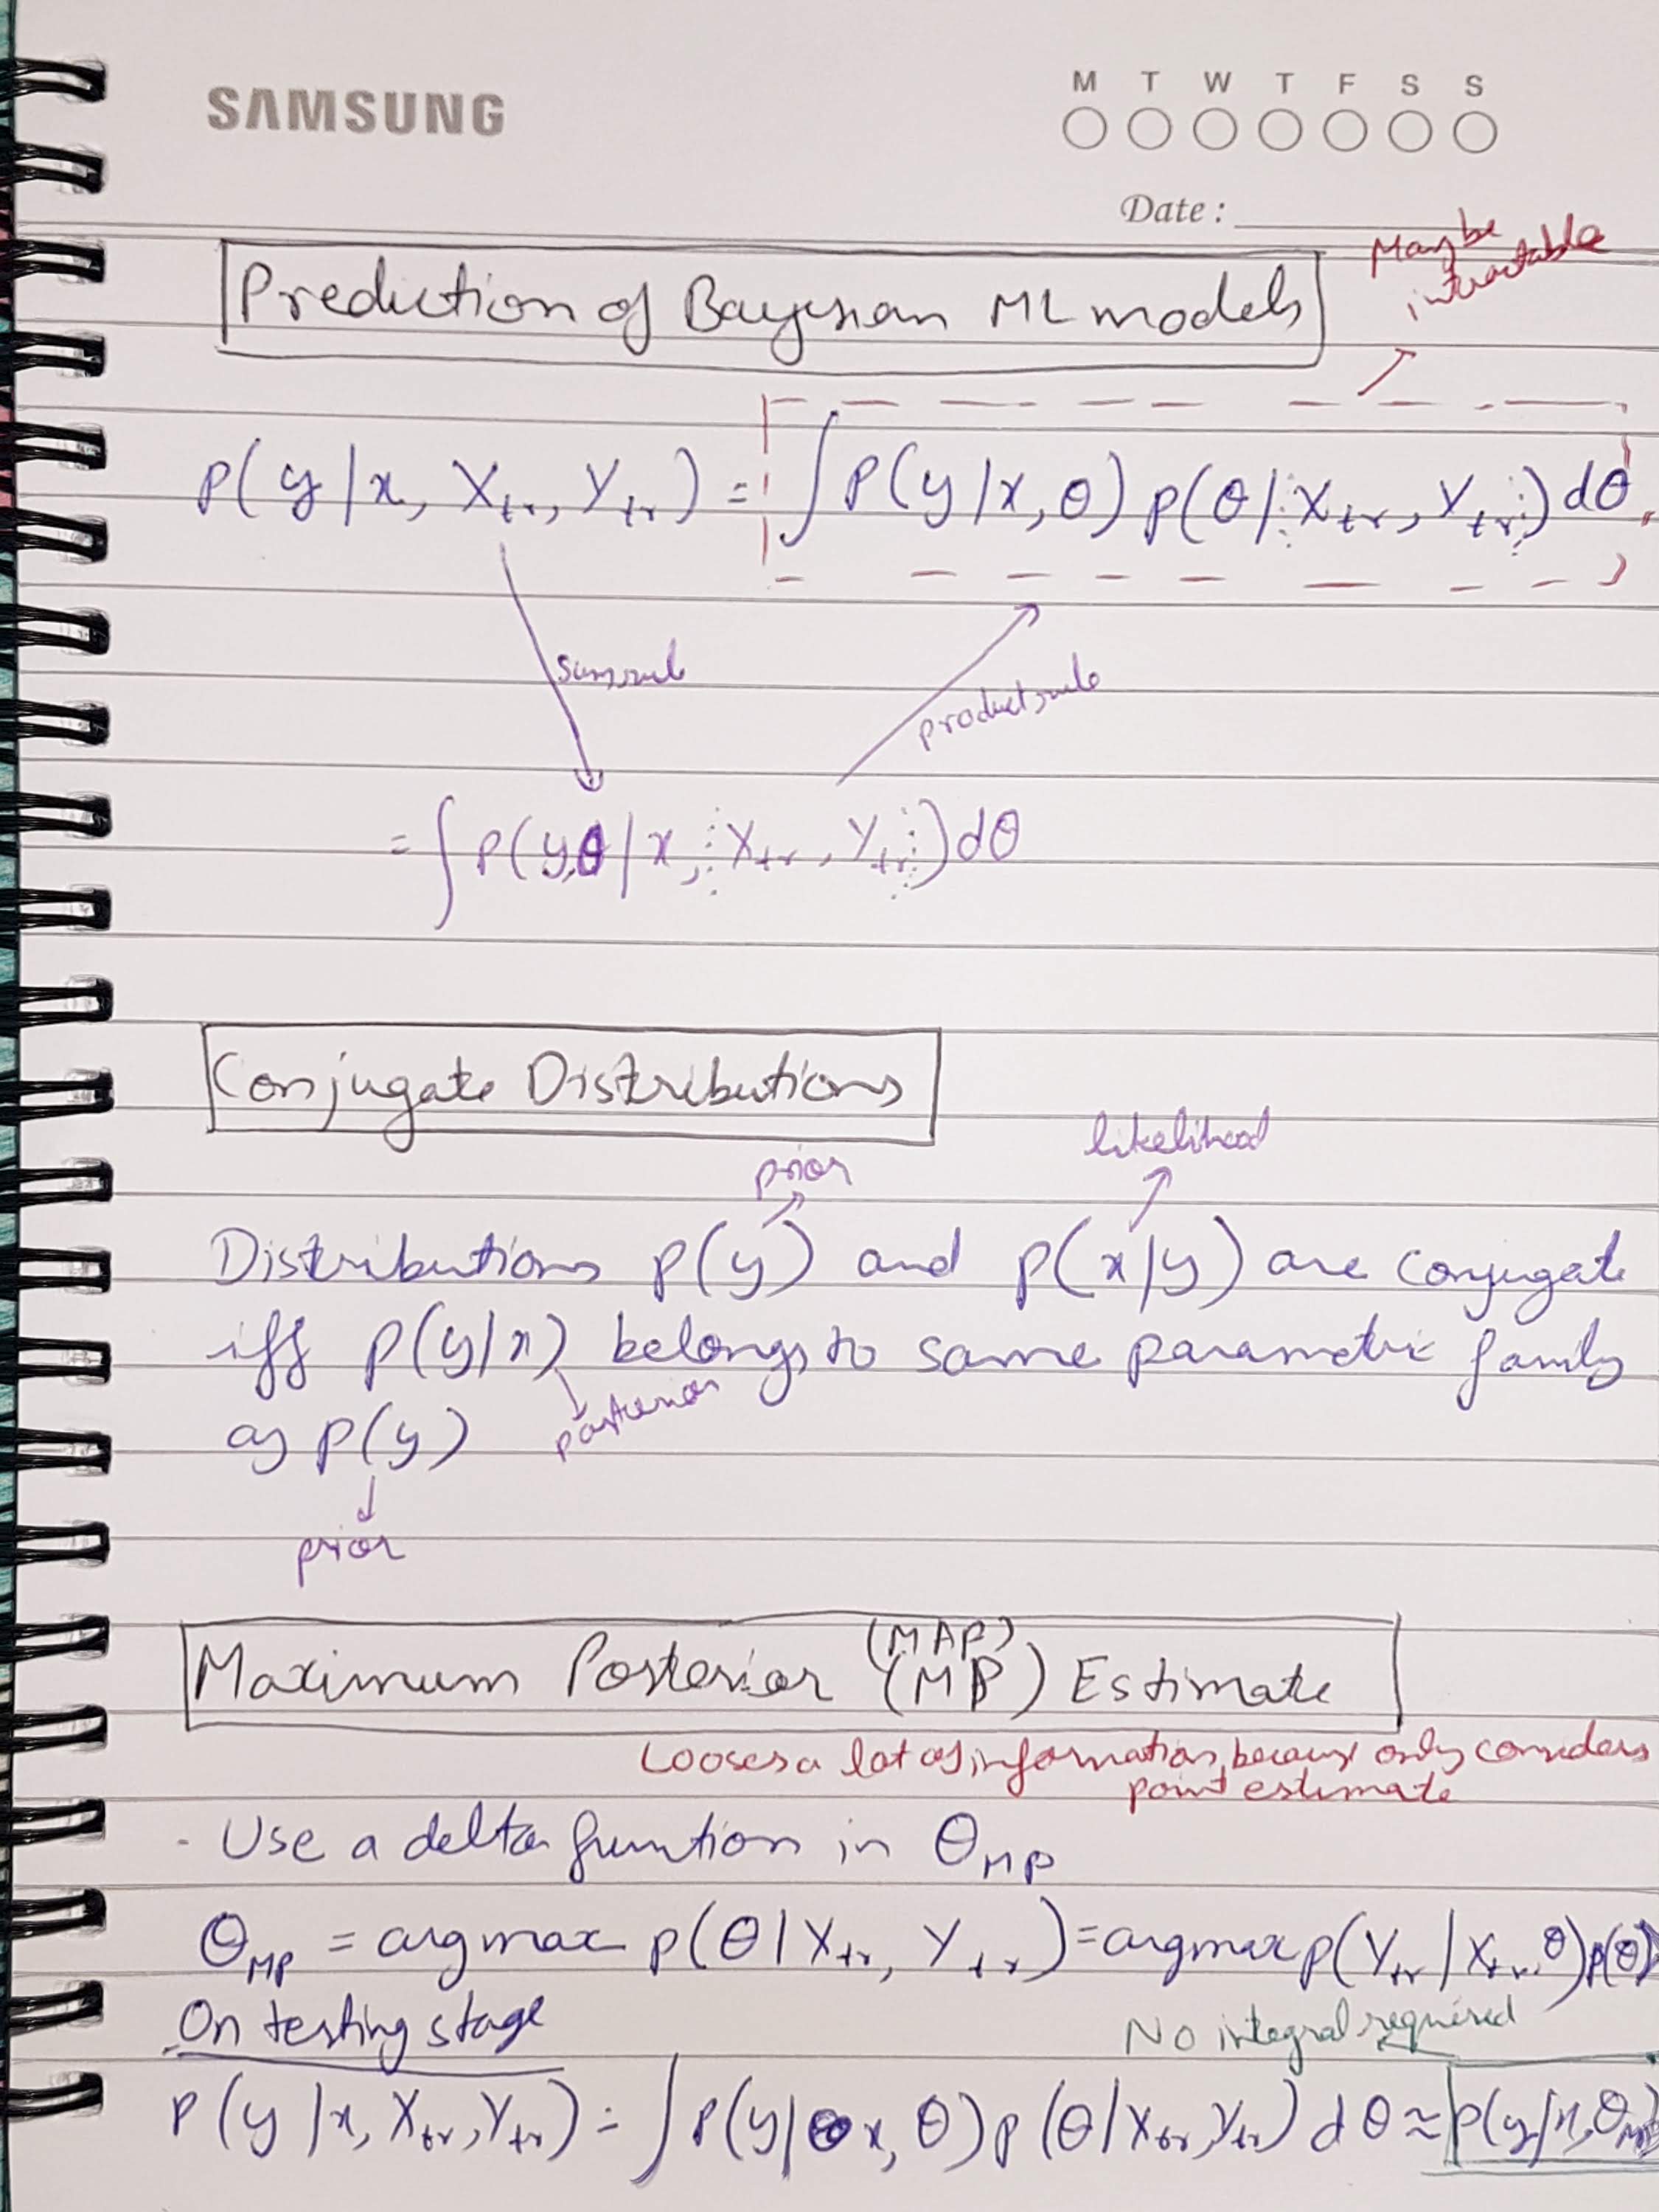 SAMSUNG
M T W T F S S
Date :
May be
intractable
Prediction of Bayesian ML models
p(y|x, X_tr, Y_tr) = ∫ p(y|x, θ) p(θ|X_tr, Y_tr) dθ
sum rule
product rule
= ∫ p(y, θ|x, X_tr, Y_tr) dθ
Conjugate Distributions
prior likelihood
Distributions p(y) and p(x|y) are conjugate
iff p(y|x) belongs to same parametric family
posterior
as p(y)
prior
(MAP)
Maximum Posterior (MP) Estimate
Looses a lot of information, because only considers
point estimate
- Use a delta function in θ_MP
θ_MP = argmax p(θ|X_tr, Y_tr) = argmax p(Y_tr|X_tr, θ) p(θ)
On testing stage
No integral required
p(y|x, X_tr, Y_tr) = ∫ p(y|x, θ) p(θ|X_tr, Y_tr) dθ ≈ p(y|x, θ_MP)